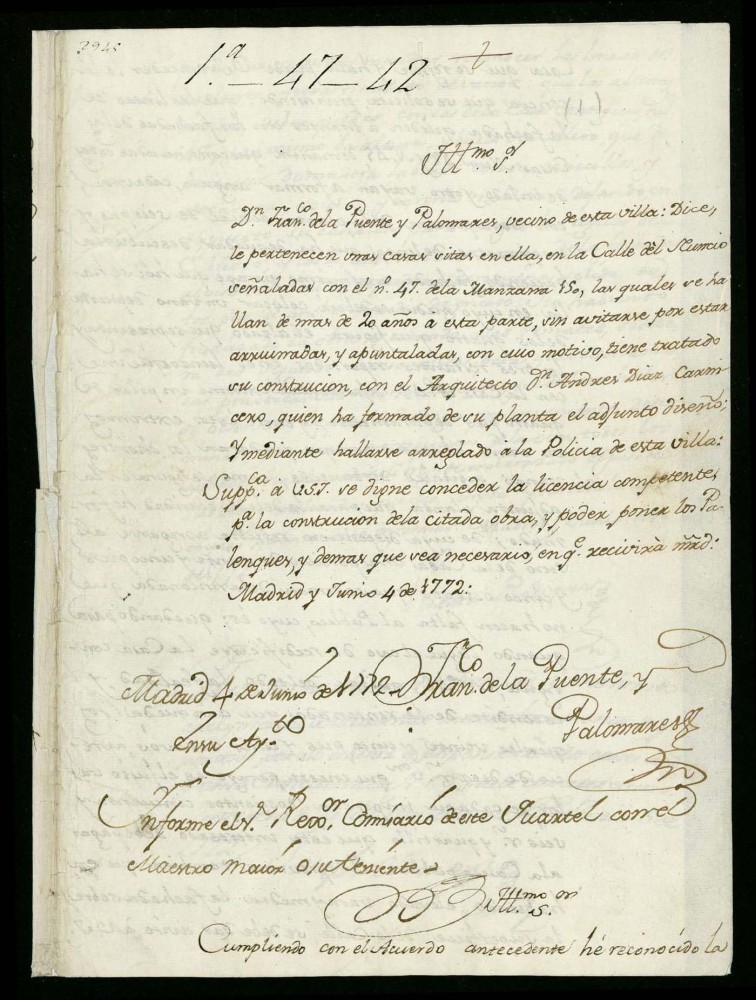 3945
1.ª - 47 - 42
(1)
Yll.mo S.or
D.n Fran.co de la Puente y Palomares, vecino de esta villa: Dice,
le pertenecen unas casas sitas en ella, en la Calle dèl Nuncio
señaladas con el n.º 47. de la Manzana 150, las quales se ha
llan de mas de 20 años à esta parte, sin avitarse por estar
arruinadas, y apuntaladas, con cuio motivo, tiene tratado
su construcion, con el Arquitecto D.n Andres Diaz Carni
cero, quien ha formado de su planta el adjunto diseño;
Y mediante hallarse arreglado à la Policia de esta villa:
Supp.ca à V.S.Y. se digne conceder la licencia competente,
p.ª la construcion dela citada obra, y poder poner los Pa-
lenques, y demas que sea necesario, en q.e recivirà mrd:
Madrid y Junio 4 de 1772:
Fran.co de la Puente, y
Palomares
Madrid 4 de Junio de 1772
En su Ay.to
Ynforme el S.r Rexo.or Comisario de este Quartel con el
Maestro maior ò su teniente
Yll.mo S.or
Cumpliendo con el Acuerdo antecedente hé reconocido la